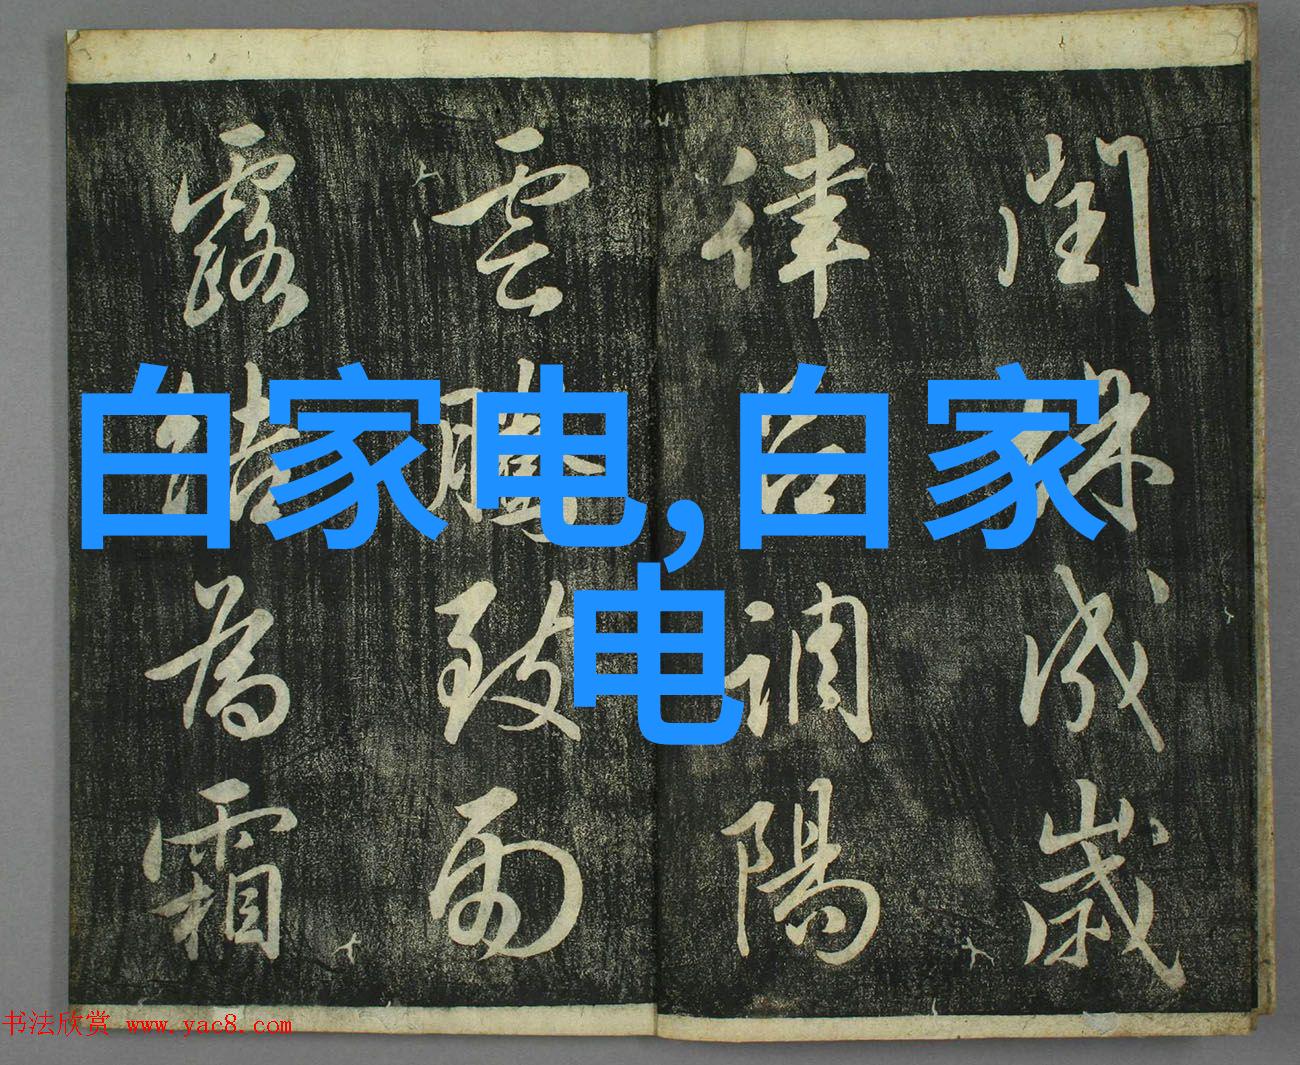 閏餘成歲
律調陽
雲騰致雨
露結為霜
白家电,白家
电
书法欣赏 www.yac8.com